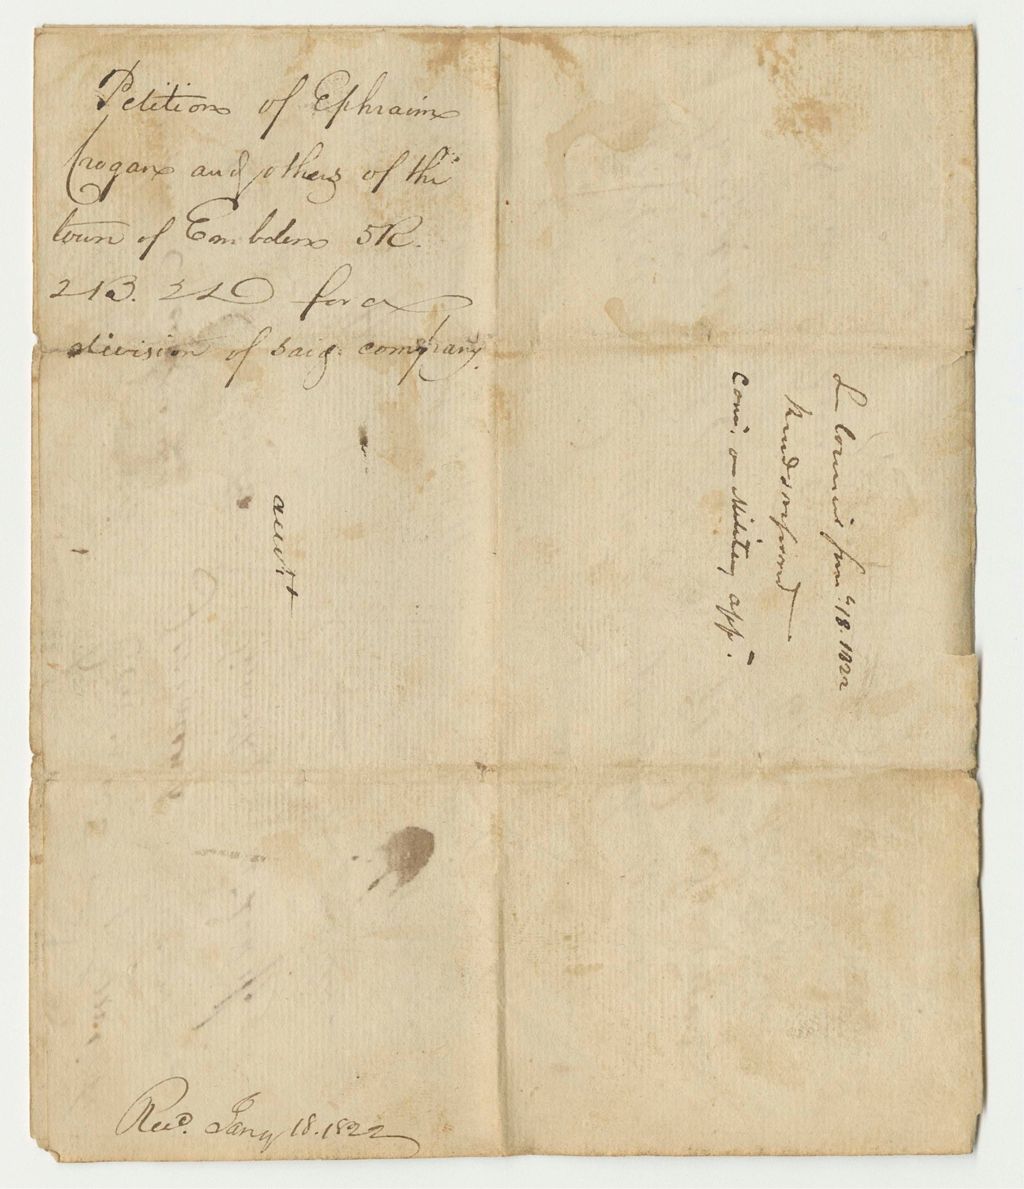 Petition of Ephraim
Cragan and others of the
town of Embden 5R.
2B. 2D for a
division of said company.
In Council Jany. 18. 1822
Read & referred
Com. on Military aff.
Recd. Jany 18. 1822